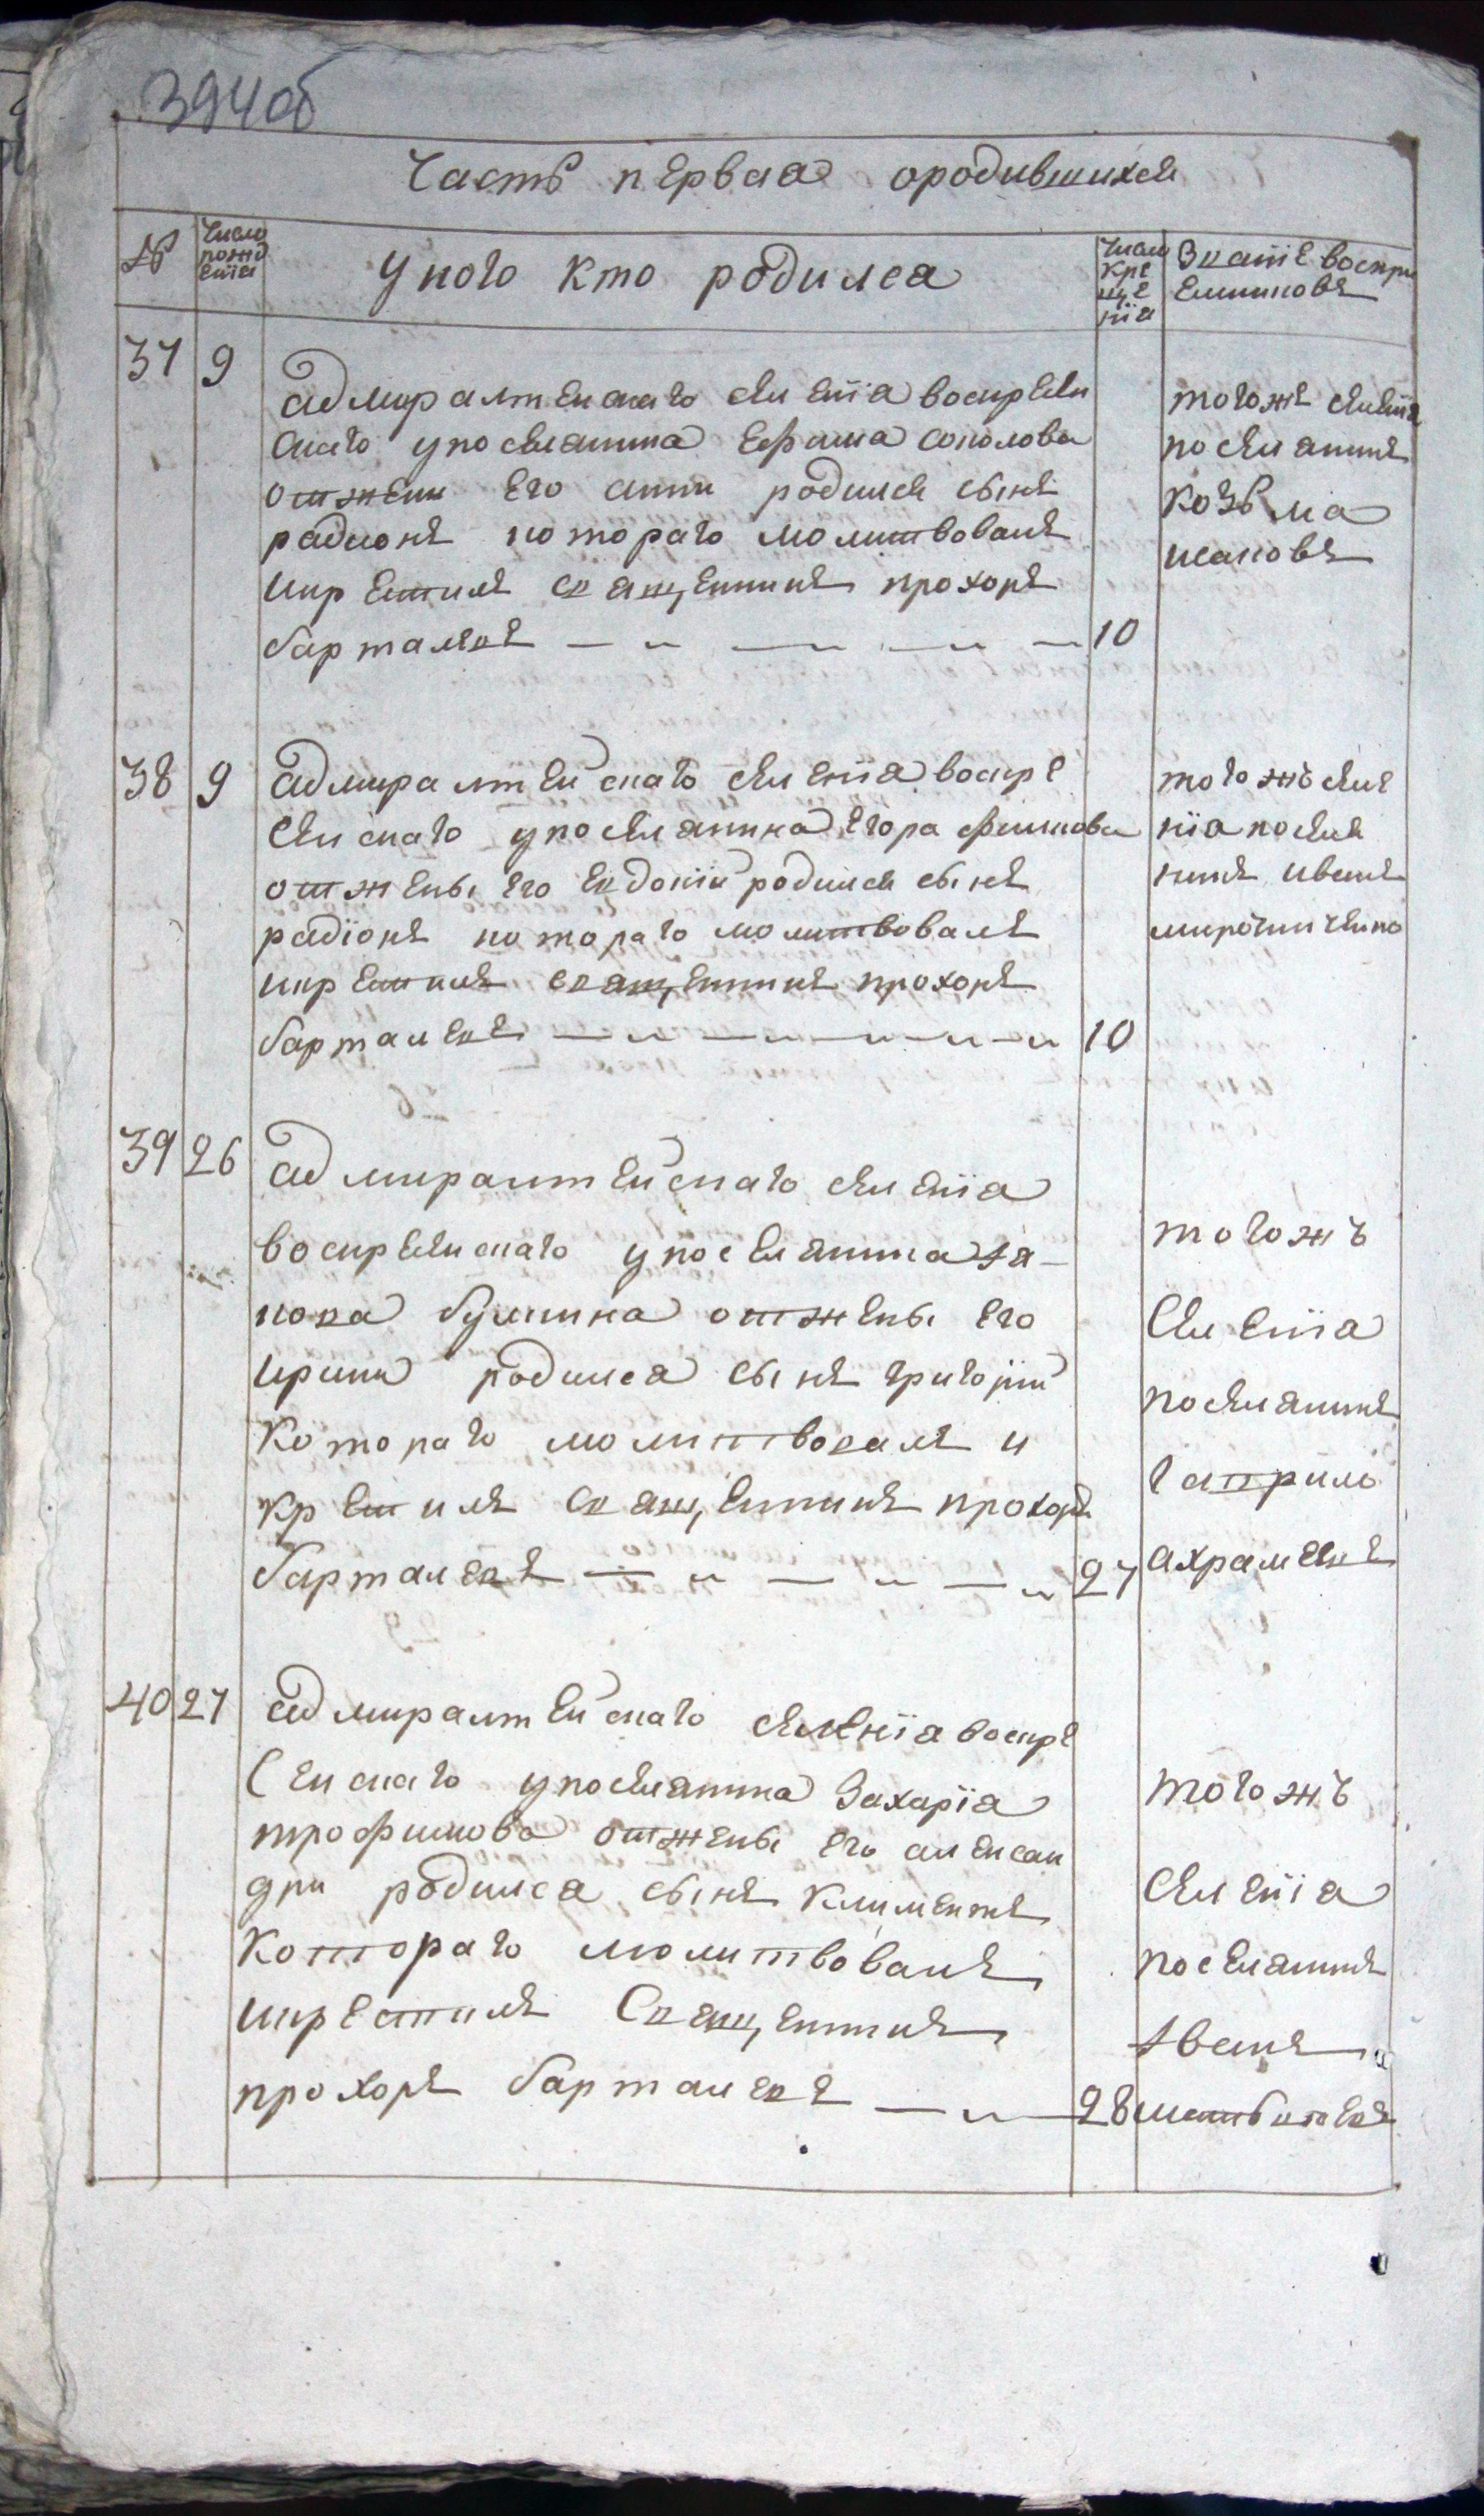 394об
Часть первая ородившихся
№
Число рождения
У кого кто родился
Число крещения
Звание восприемниковъ
37 9
адмиралтейскаго селения воскресен
скаго упоселянина Ефима соколова
отжени его анни родился сынъ
радионъ котораго молитвовалъ
икрестилъ священникъ прохоръ
барталевъ 10
тогожъ селения
поселянинъ
козьма
исаковъ
38 9
адмиралтейскаго селения воскре
сенскаго упоселянина Егора фомикова
отжены его евдокии родился сынъ
радїонъ котораго молитвовалъ
икрестилъ священникъ прохоръ
барталевъ 10
тогожъ селе
нїа поселя
нинъ иванъ
мирошниченко
39 26
адмиралтейскаго селенїа
воскресенскаго упоселянина я
кова булкина отжены его
ирини родился сынъ григорїй
котораго молитвовалъ и
крестилъ священникъ прохоръ
барталевъ 27
тогожъ
селенїа
поселянинъ
гаврило
ахрамевъ
40 27
адмиралтейскаго селенїа воскре
сенскаго упоселянина Захарїа
трофимова отжены его алексан
дри родился сынъ климентъ
котораго молитвовалъ
икрестилъ священникъ
прохоръ барталевъ 28
тогожъ
селенїа
поселянинъ
иванъ